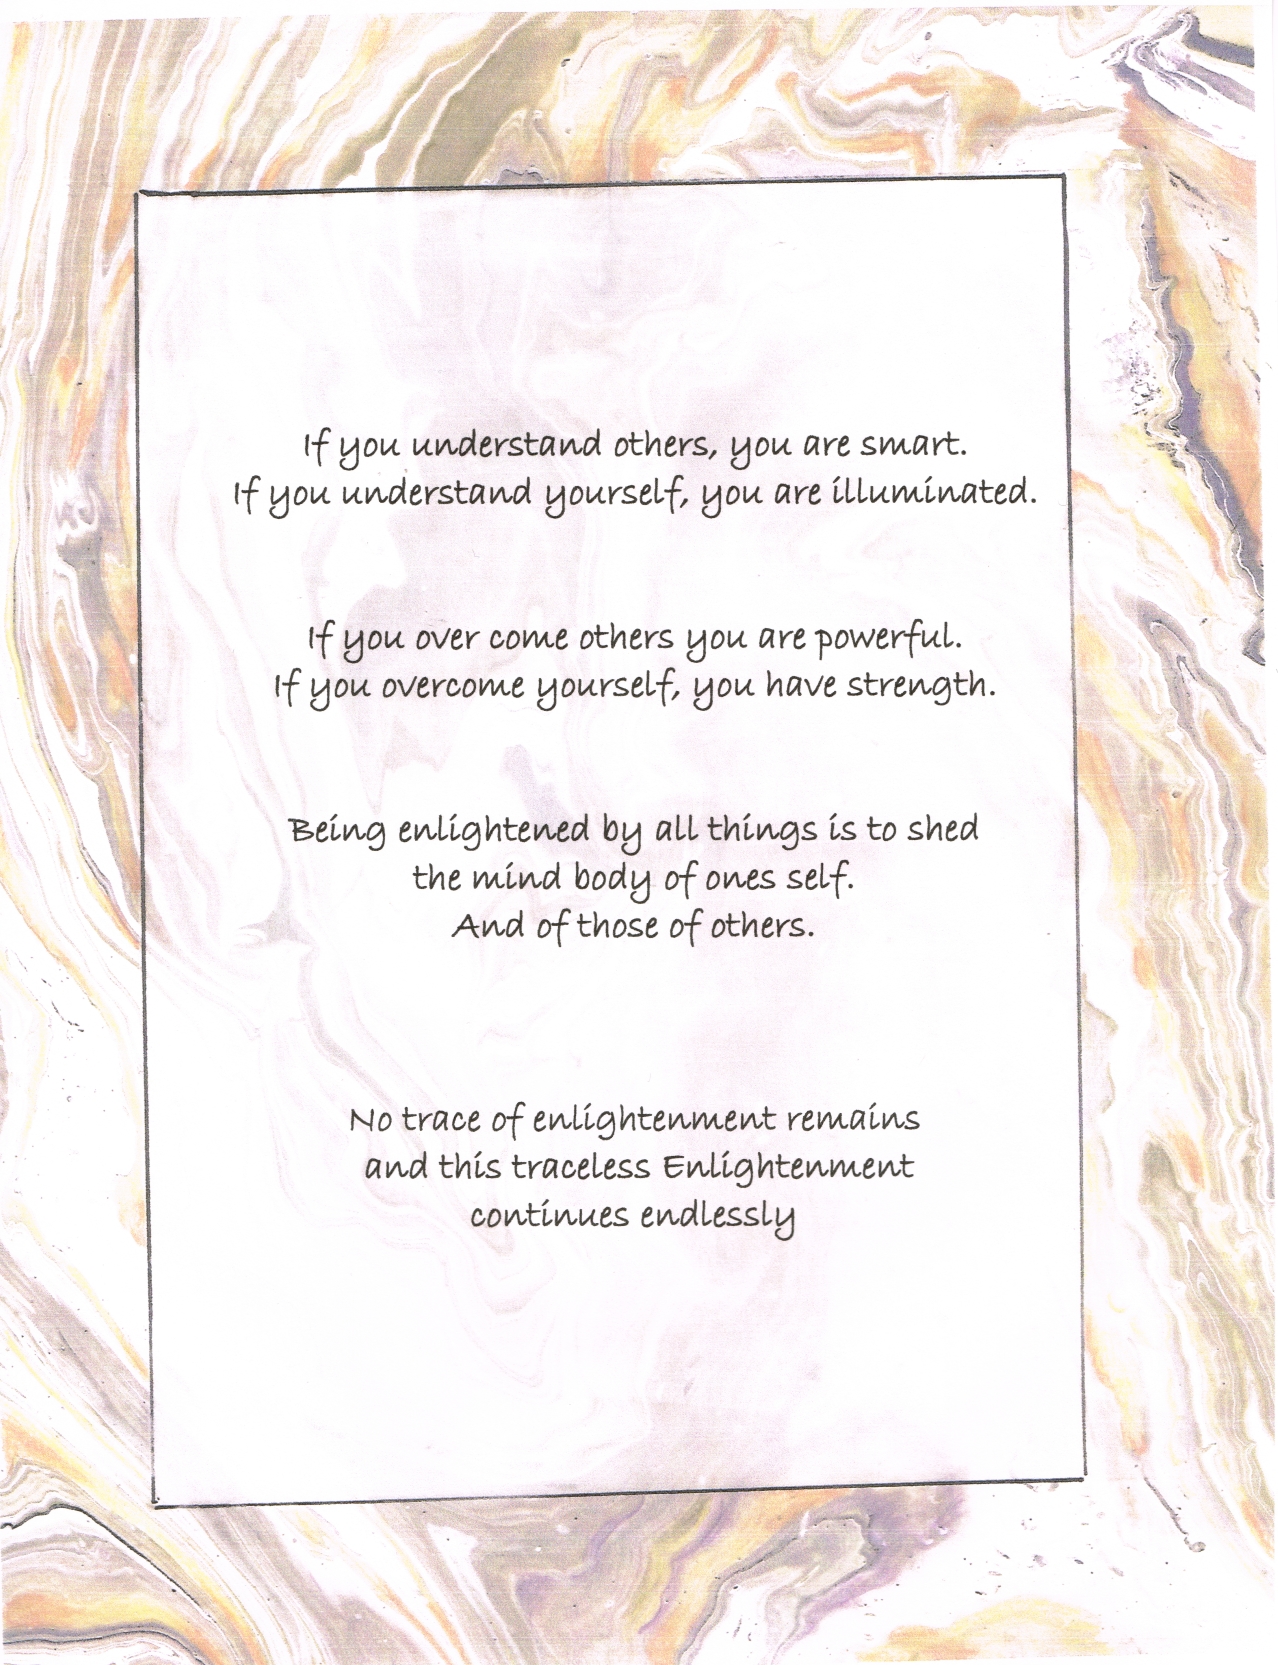 If you understand others, you are smart.
If you understand yourself, you are illuminated.
If you over come others you are powerful.
If you overcome yourself, you have strength.
Being enlightened by all things is to shed
the mind body of ones self.
And of those of others.
No trace of enlightenment remains
and this traceless Enlightenment
continues endlessly